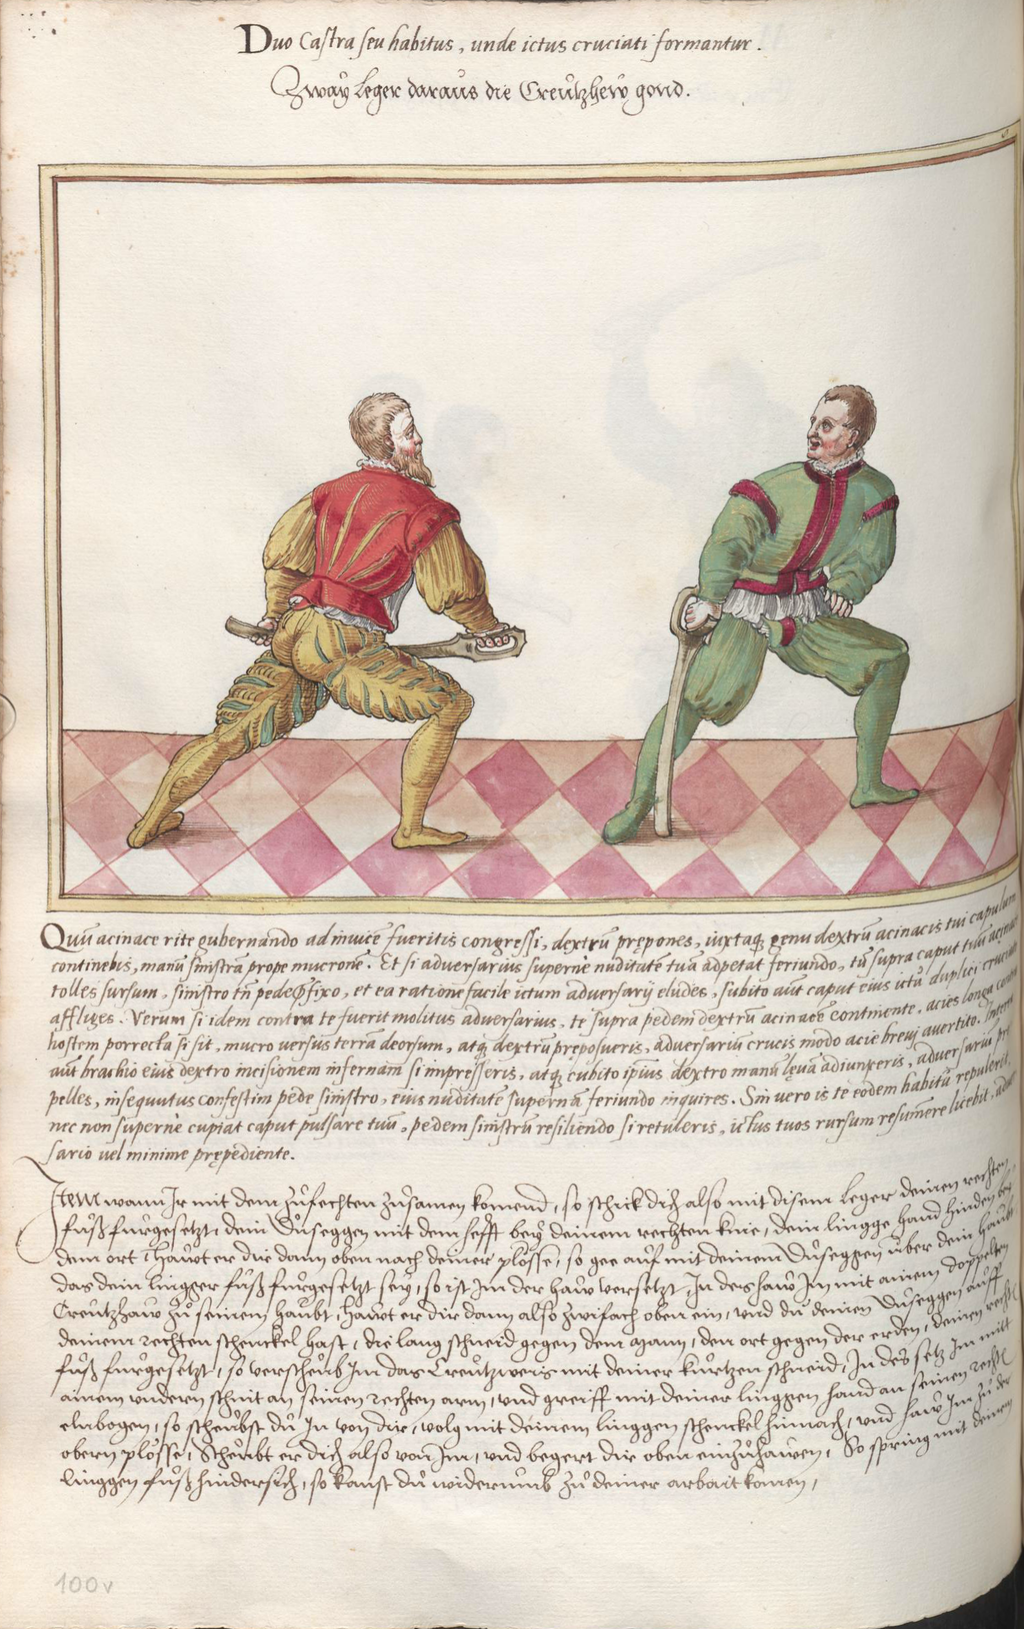 Duo Castra seu habitus, unde ictus cruciati formantur.
Zway Leger daraus die Creützhew gond.
Quū acinace rite gubernando ad invicē fueritis congressi, dextrū prępones, iuxtaq̨ genu dextrū acinacis tui capulum
continebis, manū sinistrā prope mucronē. Et si adversarius supernè nuditatē tuā adpetat feriundo, tū supra caput tuū acinacē
tolles sursum, sinistro tn̄ pede p̄fixo, et ea ratione facile ictum adversarij eludes, subito aūt caput eius ictu duplici cruciato
affliges. Verum si idem contra te fuerit molitus adversarius, te supra pedem dextrū acinacē continente, acies longa contra
hostem porrecta si sit, mucro versus terrā deorsum, atq̨ dextrū pręposueris, adversariū crucis modo acie brevi avertito. Interea
aūt brachio eius dextro incisionem infernam si impresseris, atq̨ cubito ipsius dextro manū lęvā adiunxeris, adversariū pro
pelles, insequutus confestim pede sinistro, eius nuditatē supernā feriundo inquires. Sin vero is te eodem habitu repulerit,
nec non supernè cupiat caput pulsare tuū, pedem sinistrū resiliendo si retuleris, ictus tuos rursum resumere licebit, adver
sario vel minime prępediente.
Item wann Ir mit dem zůfechten zůsamen komend, so schick dich also mit disem Leger deinen rechten
fůß fürgesetzt, dein Duseggen mit dem hefft bey deinem rechten knie, dein lingge hand hinden bey
dem ort, Hawt er dir dann oben nach deiner plösse, so gee auf mit deinem Duseggen über dein haubt
das dein lingger fůß fürgesetzt sey, so ist Im der haw versetzt, In des haw Im mit ainem doppelten
Creützhaw zů seinem haubt, Hawt er dir dann also zwifach oben ein, vnd du deinen Duseggen auff
deinem rechten schenckel hast, die lang schneid gegen dem mann, den ort gegen der erden, deinen rechten
fůß fürgesetzt, so verschieub Im das Creützweis mit deiner kurtzen schneid, In des setz Im mitt
ainem vndern schnit an seinen rechten arm, vnd greiff mit deiner linggen hand an seinen rechten
elnbogen, so scheubst du In von dir, volg mit deinem linggen schenckel hinnach, vnd haw Im zů der
obern plösse, Scheubt er dich also von Im, vnd begert dir oben einzůhawen, So spring mit deinem
linggen fůß hindersich, so kanst du widerumb zů deiner arbait komen,
100v